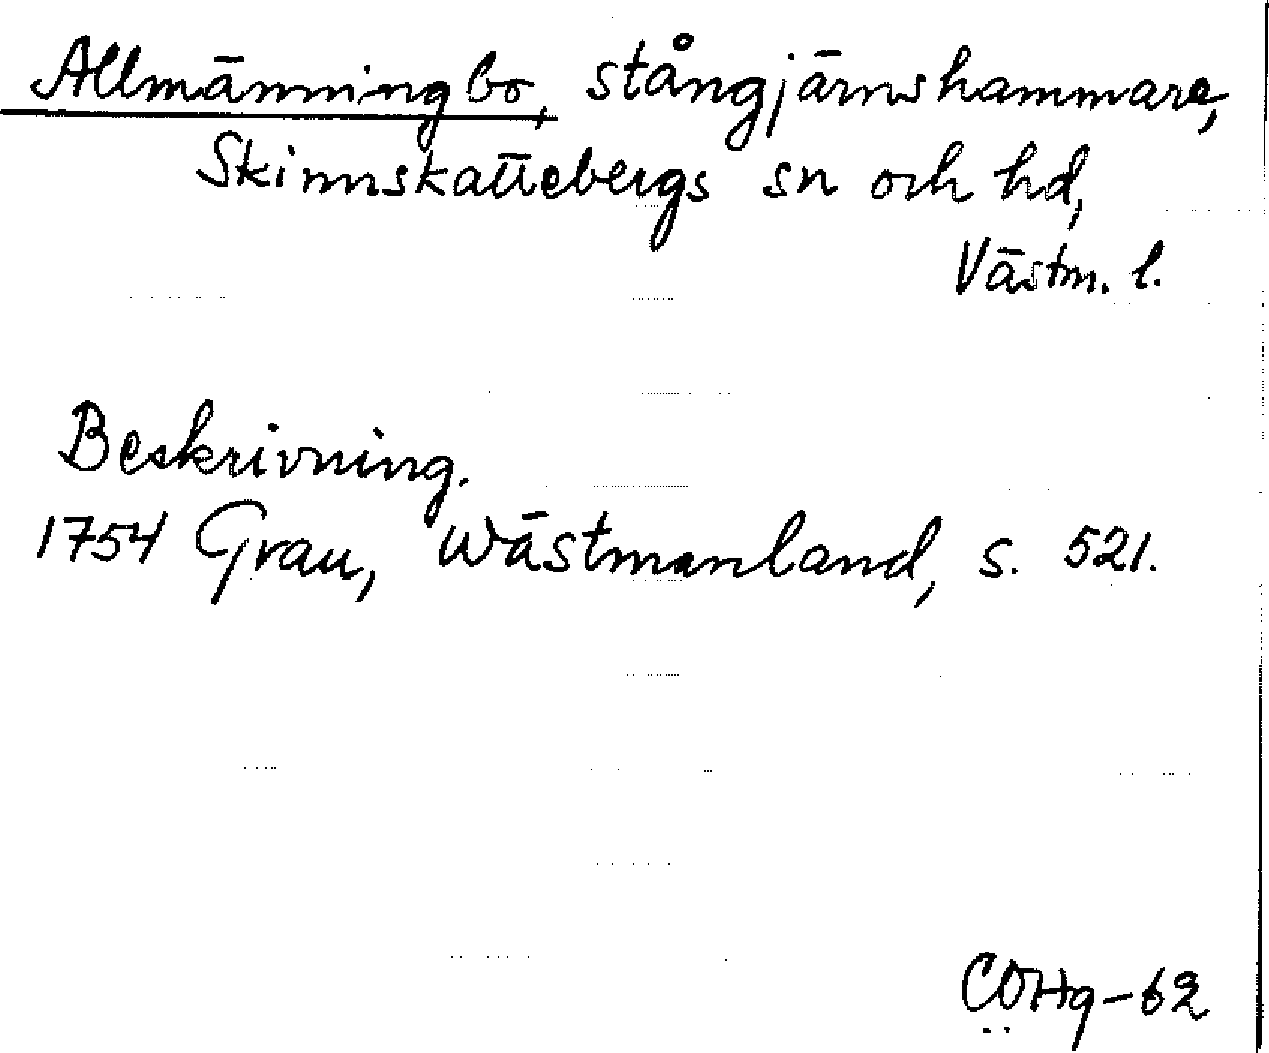 Allmänningbo, stångjärnshammare,
Skinnskattebergs sn och hd,
Västm. l.
Beskrivning.
1754 Grau, Wästmanland, s. 521.
COHq-62